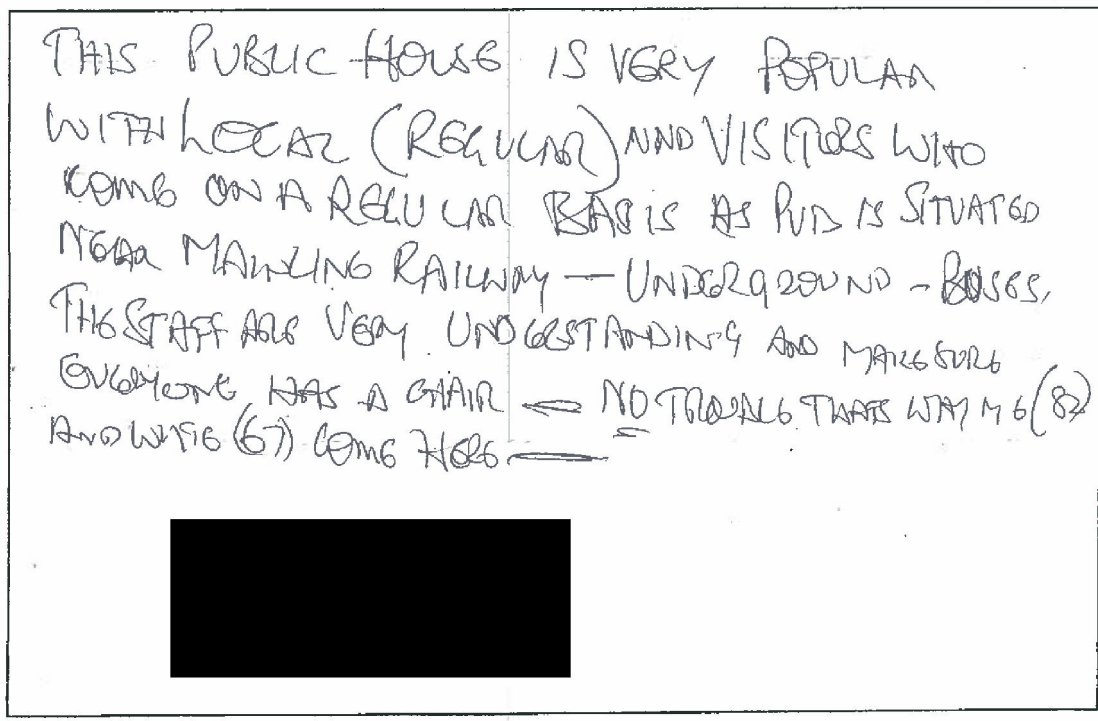 THIS PUBLIC HOUSE IS VERY POPULAR
WITH LOCAL (REGULAR) AND VISITORS WHO
COME ON A REGULAR BASIS AS PUB IS SITUATED
NEAR MAINLINE RAILWAY — UNDERGROUND - BUSES,
THE STAFF ARE VERY UNDERSTANDING AND MAKE SURE
EVERYONE HAS A CHAIR — NO TROUBLE THATS WHY ME (82)
AND WIFE (67) COME HERE —